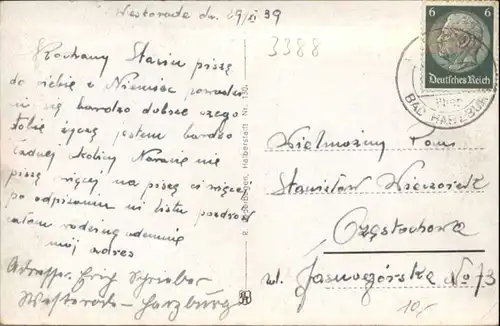 Westerode dn. 19/XI 39
Kochany Stasiu piszę
do ciebie z Niemiec powodzi
mi się bardzo dobrze czego
tobie życzę jestem bardzo
ładnej okolicy Narazie nie
piszę więcej napiszę ci więcej
po odpisaniu mi listu pozdrów
całom rodzinę odemnie
mój adres
Adresse. Erich Schrieber
Westerode-Harzburg
R. Halberstadt Nr. 130.
3388
6 6
Deutsches Reich
über
BAD HARZBURG
Wielmożny Pan
Stanisław Wieczorek
Częstochowa
ul. Jasnogórska No 73
10,-